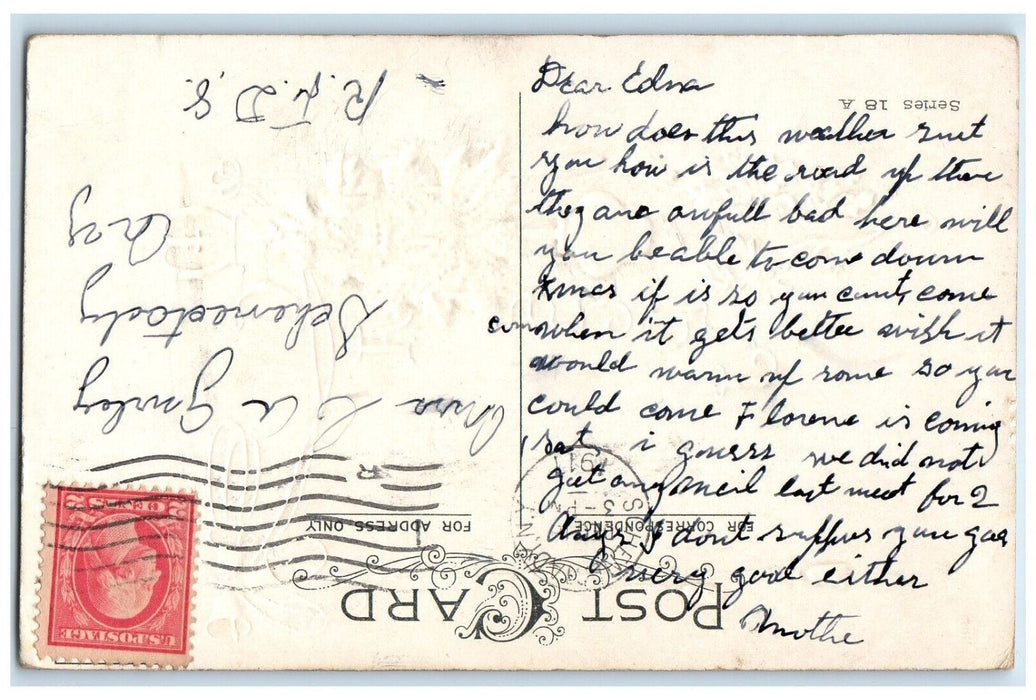 Dear Edna
how does this weather suit
you how is the road up there
they are awfull bad here will
you beable to come down
Xmas if is so you cant, come
come when it gets bettee wish it
would warm up some so you
could come Florene is coming
sat i guess we did not
get any meil last week for 2
days I dont suppose you got
very good either
Mothe
Series 18 A
POST CARD
FOR CORRESPONDENCE
FOR ADDRESS ONLY
SCHENECTADY
N.Y.
2 CENTS 2
U.S. POSTAGE
Mrs C A Gurley
Schenectady
N.Y
R.F.D 8.